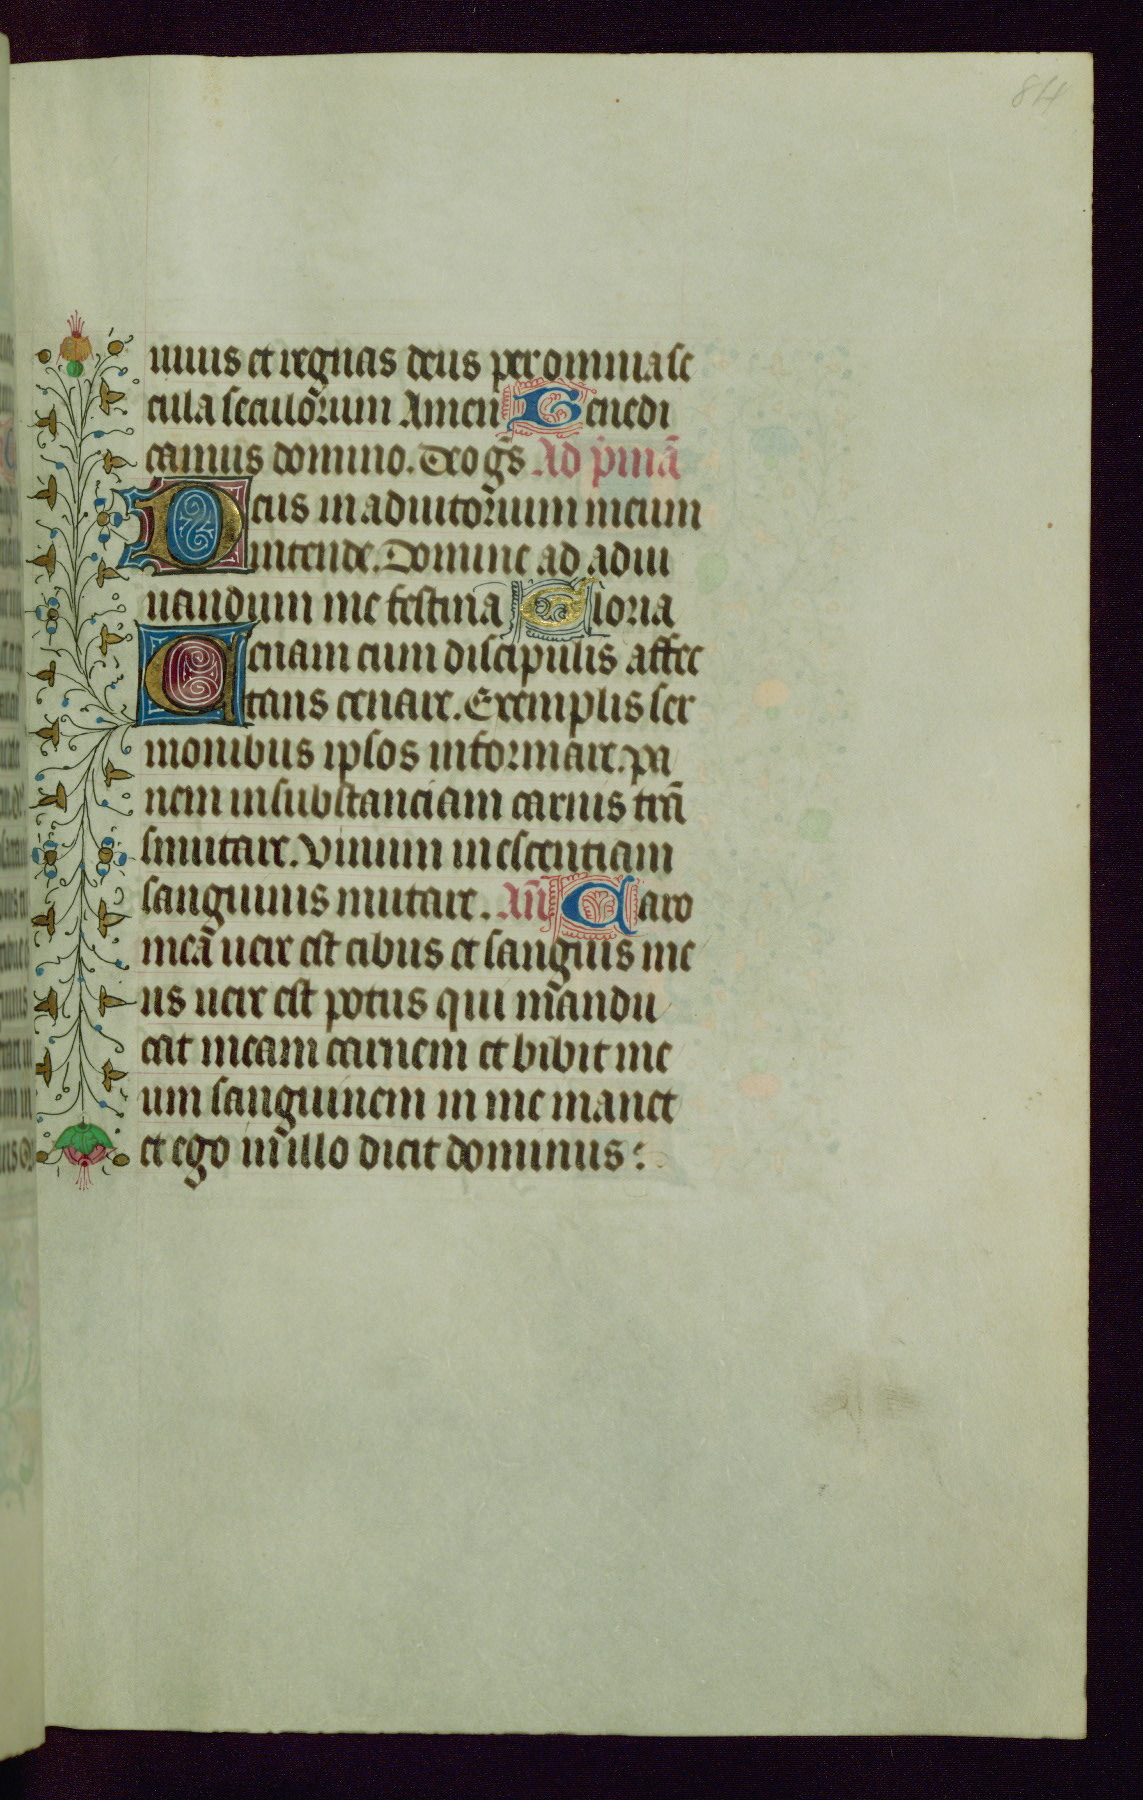 84
uiuis et regnas deus per omnia se
cula seculorum Amen Benedi
camus domino. Deo gr̃s Ad primã
Deus in adiutorium meum
intende. Domine ad adiu
uandum me festina Gloria
Cenam cum discipulis affec
tans cenare. Exemplis ser
monibus ipsos informare. pa
nem in substanciam carnis trã
smutare. Vinum in escentiam
sanguinis mutare. Añ Caro
mea uere est cibus et sanguis me
us uere est potus qui mandu
cat meam carnem et bibit me
um sanguinem in me manet
et ego in illo dicit dominus :